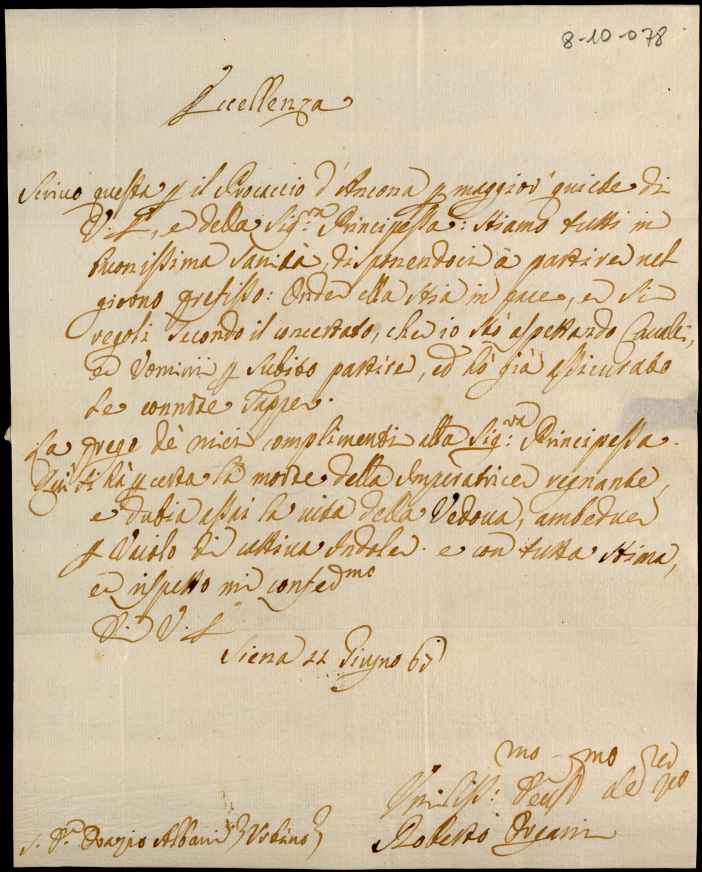 8-10-078
Eccellenza
Scrivo questa p il Procaccio d'Ancona p maggior quiete di
V. E., e della Sig.ra Principessa: stiamo tutti in
buonissima sanità, disponendoci à partire nel
giorno prefisso: Onde ella stia in pace, e si
regoli secondo il concertato, che io stò aspettando Cavalli,
ed Uomini p subito partire, ed hò già assicurato
le
La prego dè miei complimenti alla Sig.ra Principessa.
Qui si hà p certa la morte della Imperatrice regnante,
e dubia assai la vita della Vedova, ambedue
p Vaiolo di cattiva Indole. e con tutta stima,
e rispetto mi confermo
Di V. E.
Siena 22 Giugno 67
S. Pn. Orazio Albani Urbino
Roberto